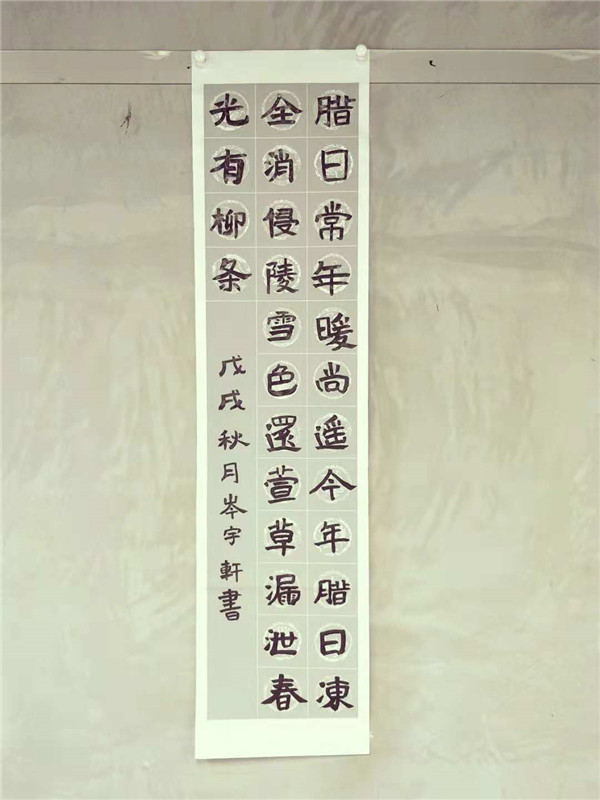 腊日常年暖尚遥今年腊日凍
全消侵陵雪色還萱草漏泄春
光有柳条
戊戌秋月岑宇軒書